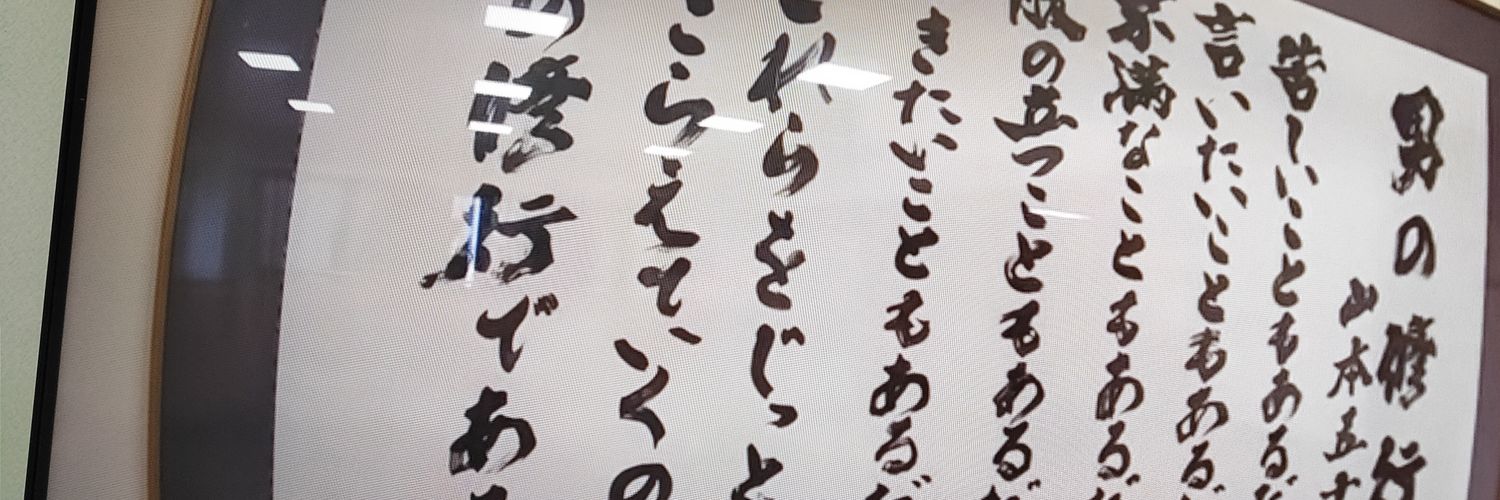 男の修行
山本五十
苦しいこともあるだ
言いたいこともあるだ
不満なこともあるだ
腹の立つこともあるだ
きたいこともあるだ
これらをじっと
こらえていくの
の修行である